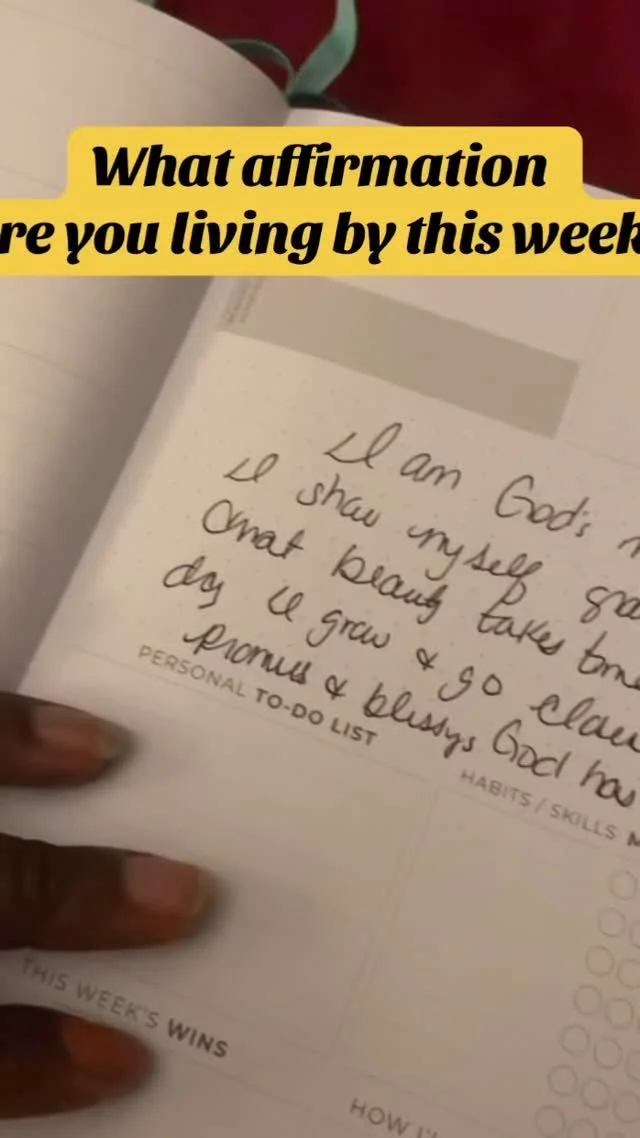 What affirmation
re you living by this week
I am God's
I show myself gra
that beauty takes time
day I grow & go
promises & blessings God has
PERSONAL TO-DO LIST
HABITS / SKILLS M
THIS WEEK'S WINS
HOW I'